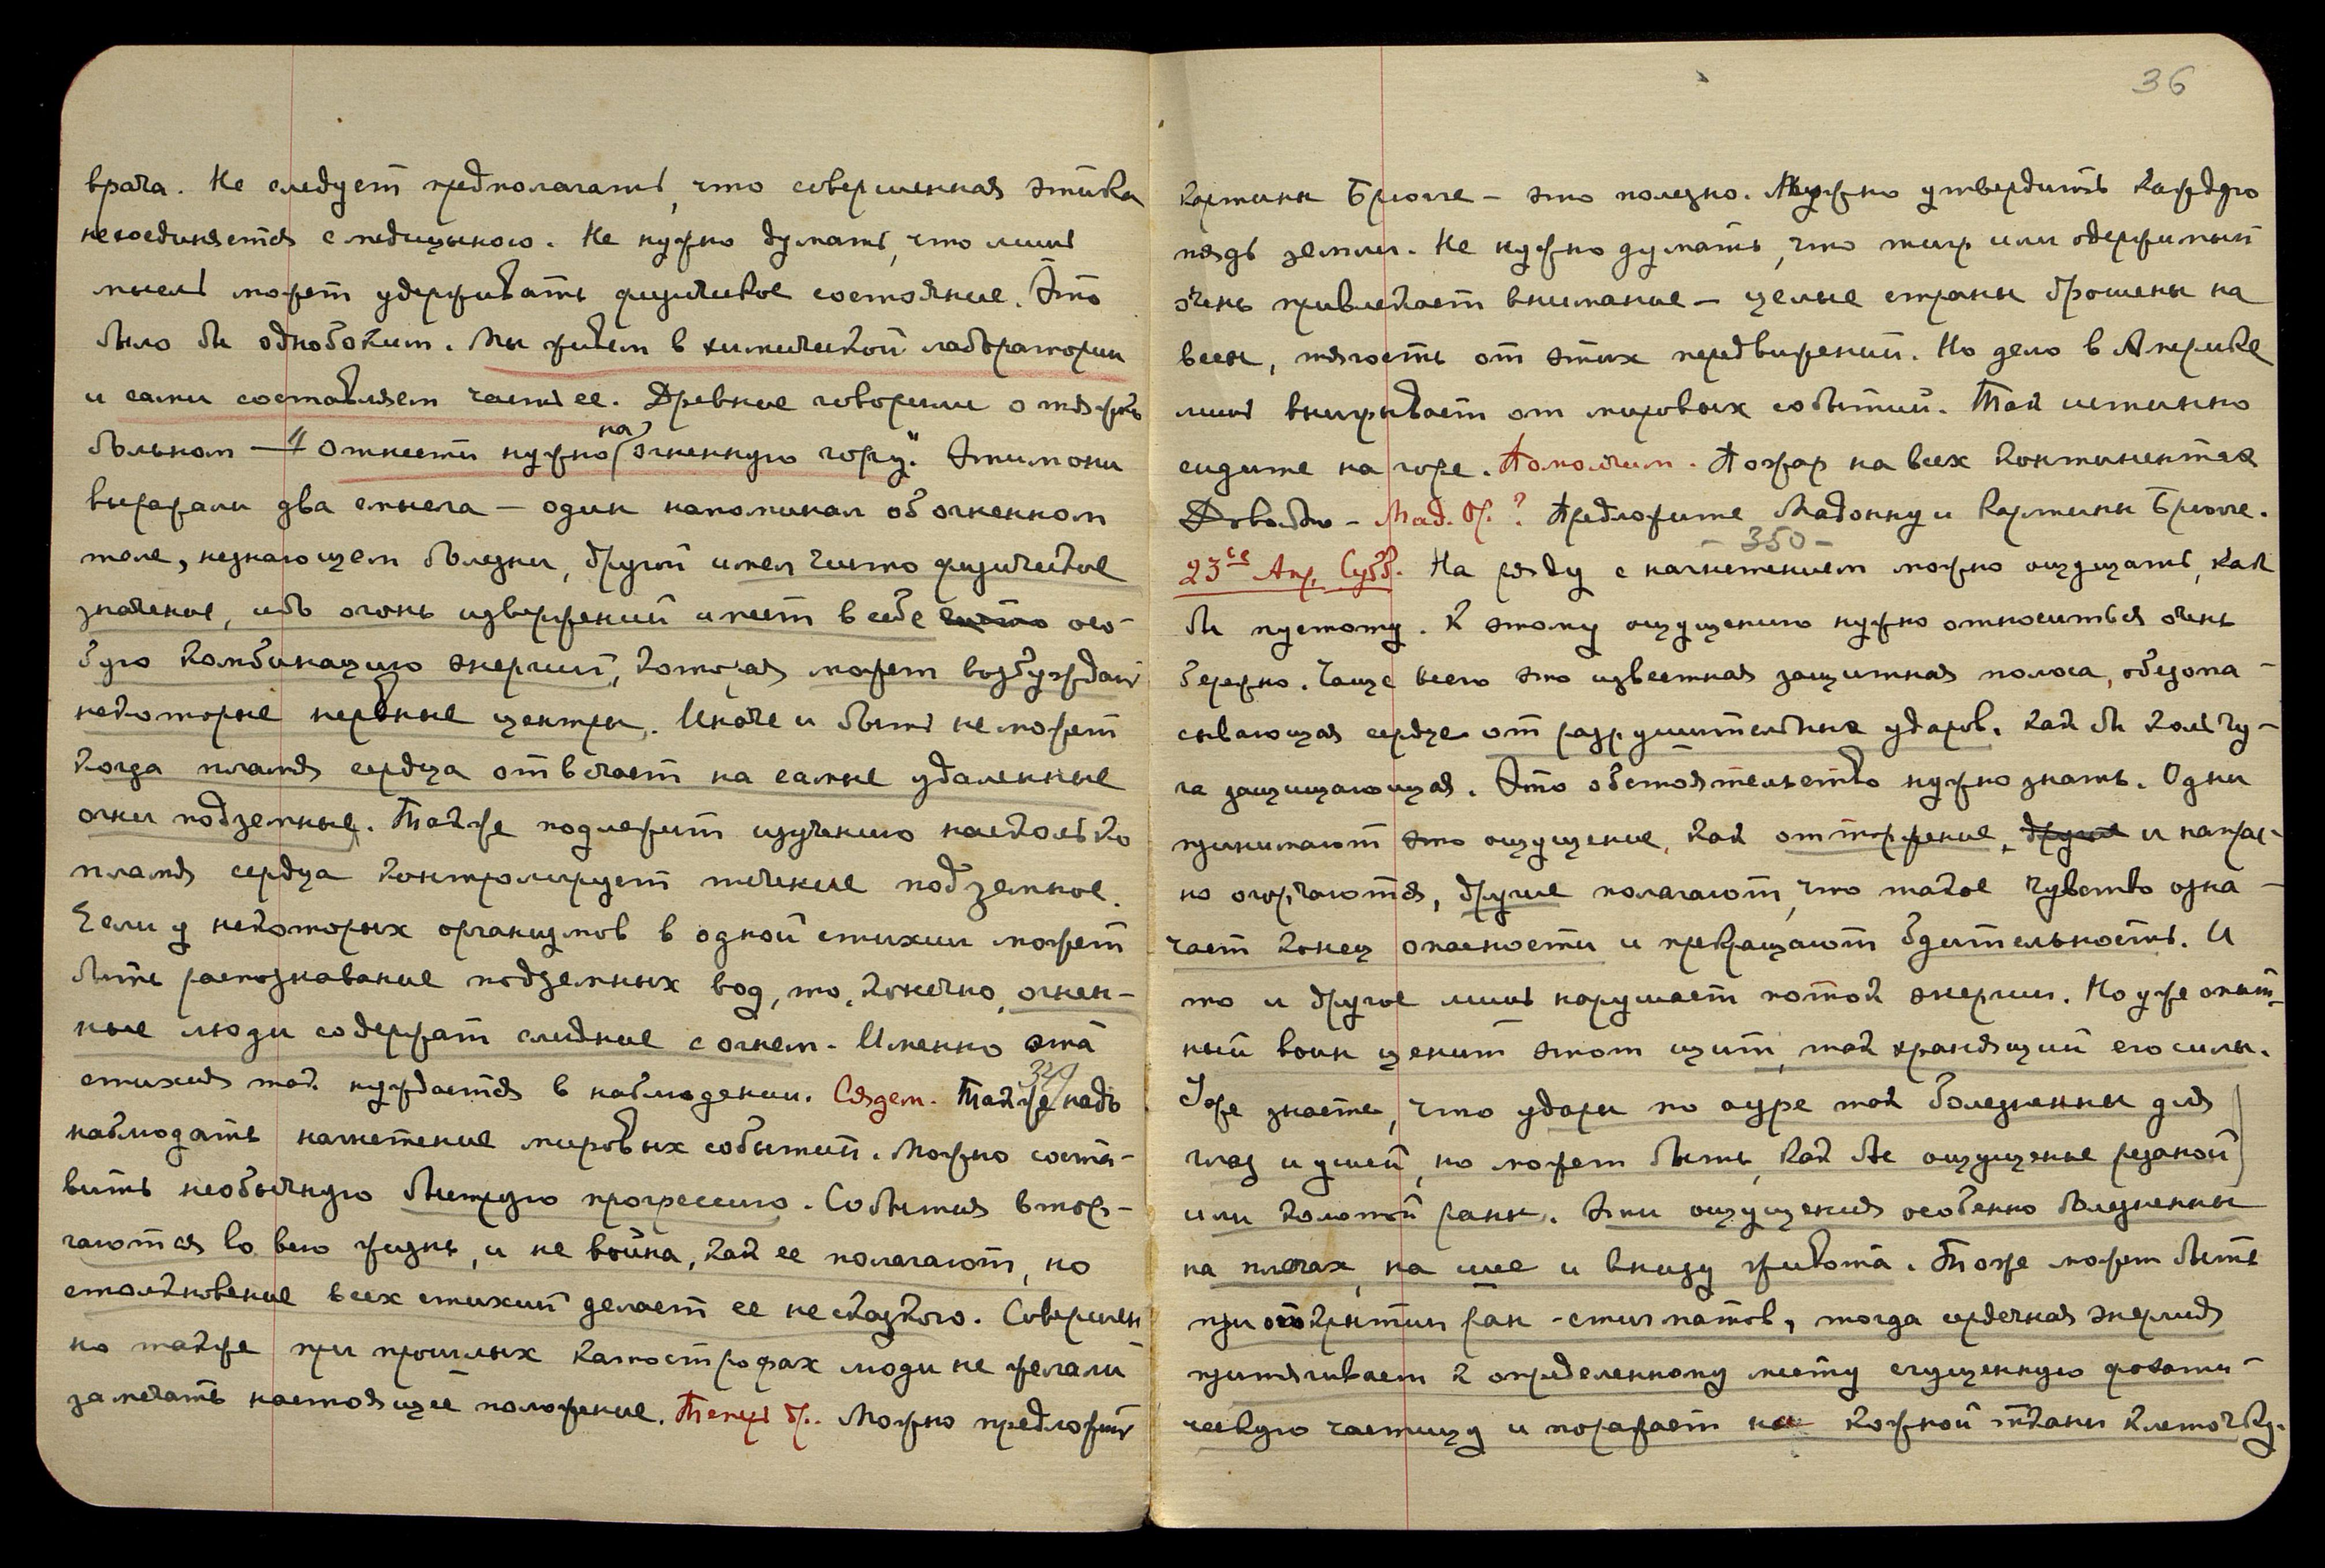 врача. Не следует предполагать, что совершенная этика
несоединяется с медициною. Не нужно думать, что лишь
мысль может удерживать физическое состояние. Это
было бы однобоким. Мы живем в химической лаборатории
и сами составляем часть ее. Древние говорили о тяжко
больном — "отнести нужно на огненную гору". Этим они
выражали два смысла — один напоминал об огненном
теле, незнающем болезни, другой имел чисто физическое
значение, ибо огонь извержений имеет в себе чисто осо-
бую комбинацию энергий, которая может возбуждать
некоторые нервные центры. Иначе и быть не может
когда пламя сердца отвечает на самые удаленные
огни подземные. Также подлежит изучению насколько
пламя сердца контролирует течение подземное.
Если у некоторых организмов в одной стихии может
быть распознавание подземных вод, то, конечно, огнен-
ные люди содержат слияние с огнем. Именно эта
стихия так нуждается в наблюдении. Сядем. Также надо
349
наблюдать нагнетение мировых событий. Можно соста-
вить необычную быструю прогрессию. События вторг-
гаются во всю жизнь, и не война, как ее полагают, но
столкновение всех стихий делает ее несказкою. Совершен
но также при прошлых катастрофах люди не желали
замечать настоящее положение. Теперь др. Можно предложить
36
картины Брюгге — это полезно. Нужно утвердить каждую
пядь земли. Не нужно думать, что тигр или одержимый
очень привлекает внимание — целые страны брошены на
весы, тягость от этих передвижений. Но дело в Америке
лишь выигрывает от мировых событий. Так истинно
сидите на горе. Помолчим. Пожар на всех континентах
Довольно — Мад. Ор.? Предложите Мадонну и картины Брюгге.
– 350 –
23ье Апр. Субб. На ряду с нагнетением можно ощущать, как
бы пустоту. К этому ощущению нужно относиться очень
бережно. Чаще всего это известная защитная полоса, обезопа-
сывающая сердце от разрушительных ударов. Как бы кольчу-
га защищающая. Это обстоятельство нужно знать. Одни
принимают это ощущение, как отторжение, другие и напрас-
но огорчаются, другие полагают, что такое чувство озна-
чает конец опасности и прекращают бдительность. И
то и другое лишь нарушает поток энергии. Но уже опыт-
ный воин ценит этот щит, так хранящий его силы.
Уже знаете, что удары по ауре так болезненны для
глаз и ушей, но может быть, как бы ощущенье резаной
или колотой раны. Эти ощущения особенно болезненны
на плечах, на шее и внизу живота. Тоже может быть
при открытии ран - стигматов, тогда сердечная энергия
притягивает к определенному месту сгущенную фохати-
ческую частицу и поражает на кожной ткани клеточку.